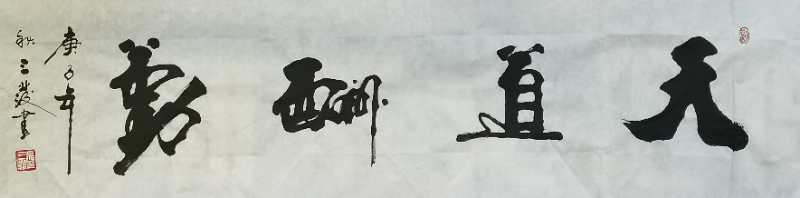 天道酬勤
庚子年
秋三发书